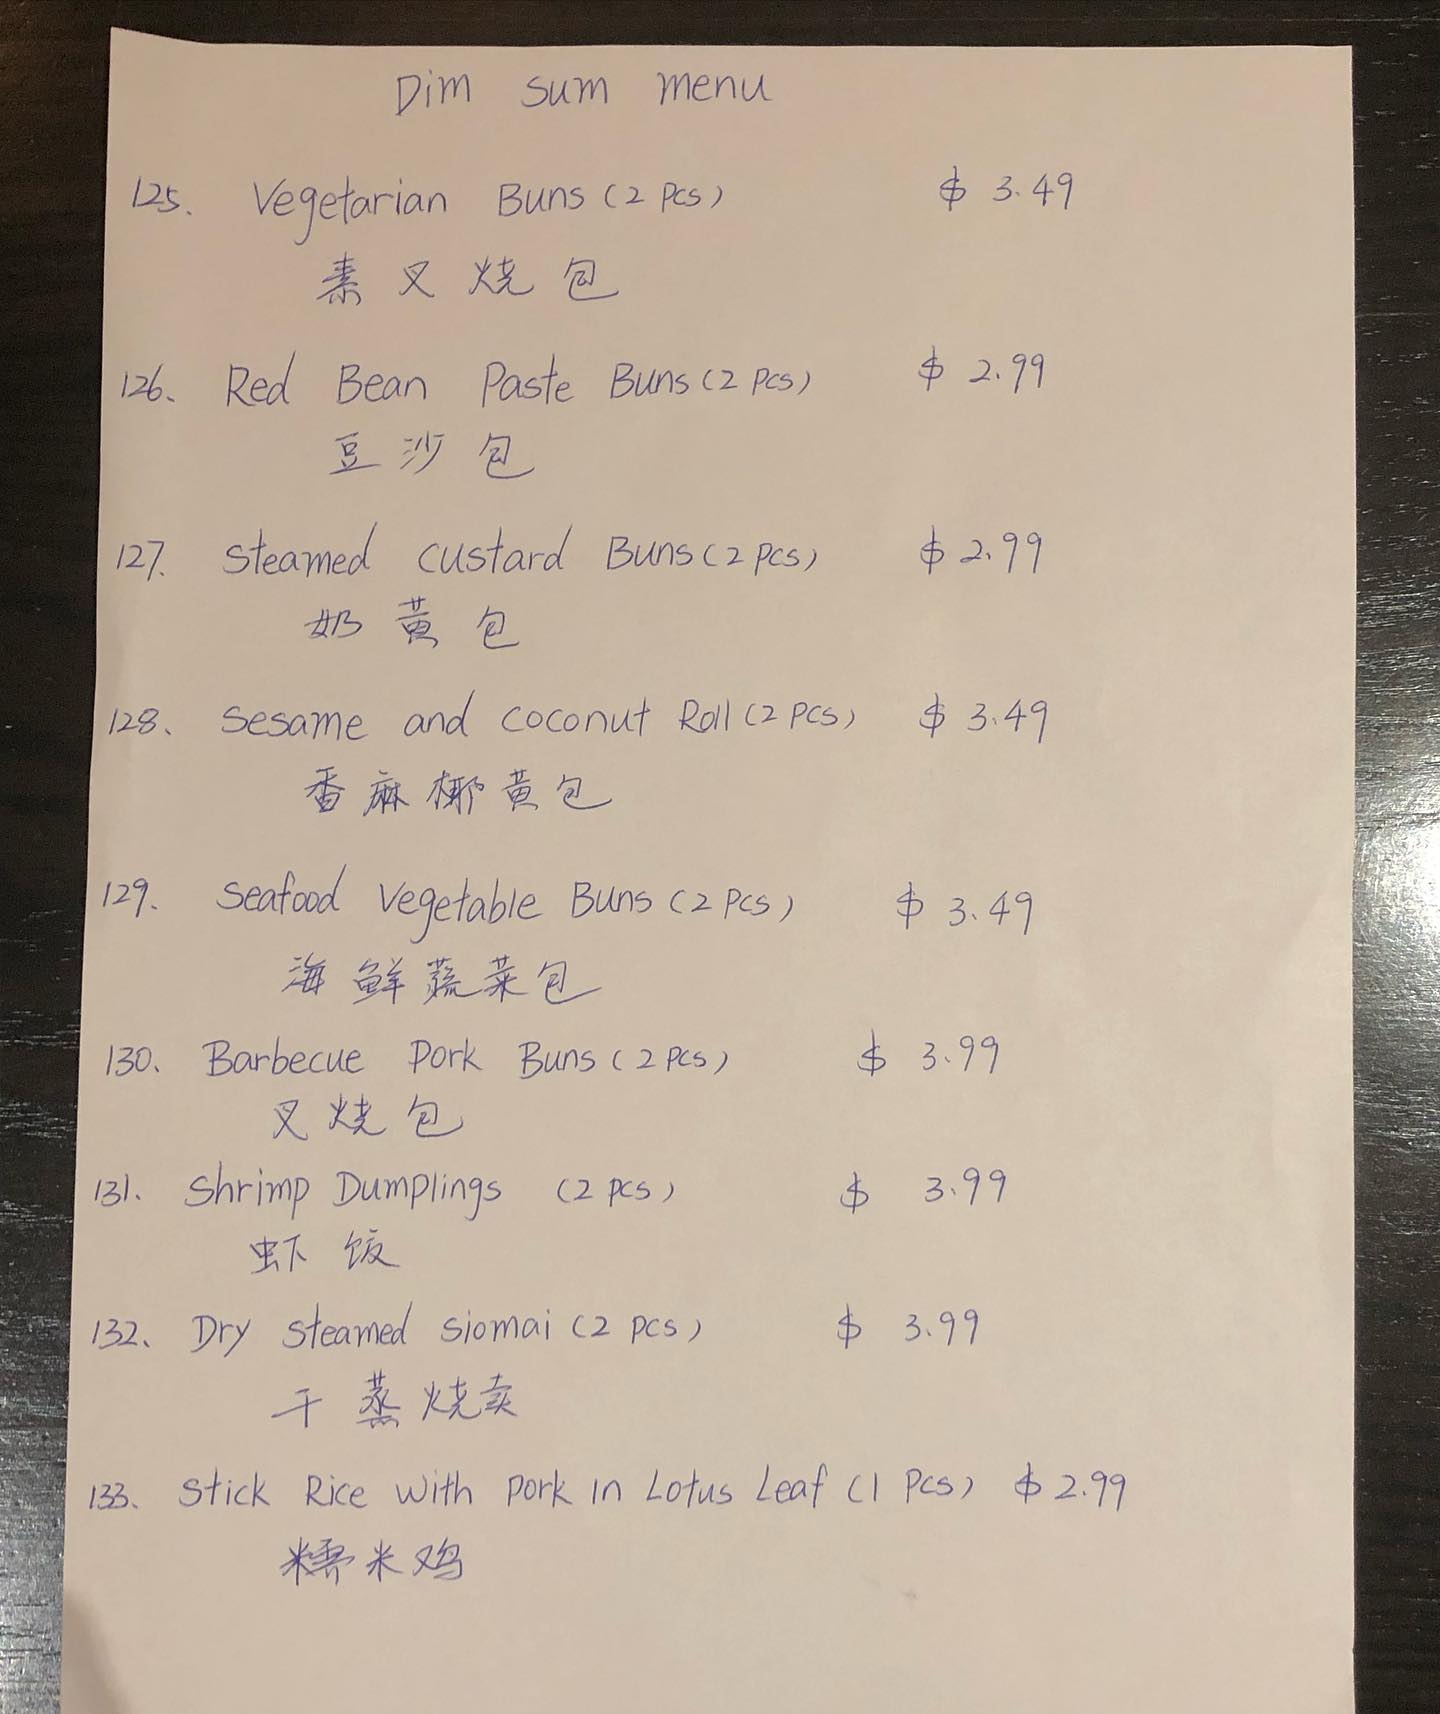 Dim sum menu
125. Vegetarian Buns (2 pcs) $ 3.49
素叉烧包
126、 Red Bean Paste Buns (2 pcs) $ 2.99
豆沙包
127. Steamed custard Buns (2 pcs) $ 2.99
奶黄包
128、 Sesame and coconut Roll (2 pcs) $ 3.49
香麻椰黄包
129. Seafood Vegetable Buns (2 pcs) $ 3.49
海鲜蔬菜包
130. Barbecue Pork Buns (2 pcs) $ 3.99
叉烧包
131. Shrimp Dumplings (2 pcs) $ 3.99
虾饺
132、 Dry steamed siomai (2 pcs) $ 3.99
干蒸烧卖
133、 Stick Rice with pork in Lotus Leaf (1 pcs) $ 2.99
糯米鸡